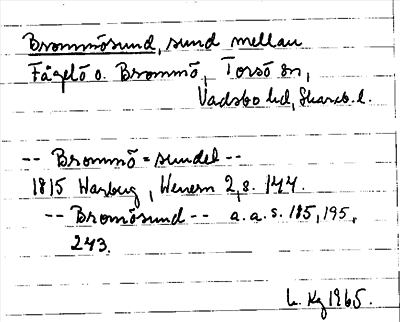 Brommösund, sund mellan
Fågelö o. Brommö, Torsö sn,
Vadsbo hd, Skarab. l.
-- Brommö=sundet --
1815 Warberg, Wenern 2, s. 144.
-- Bromösund -- a. a. s. 185, 195,
243.
Kg 1965.